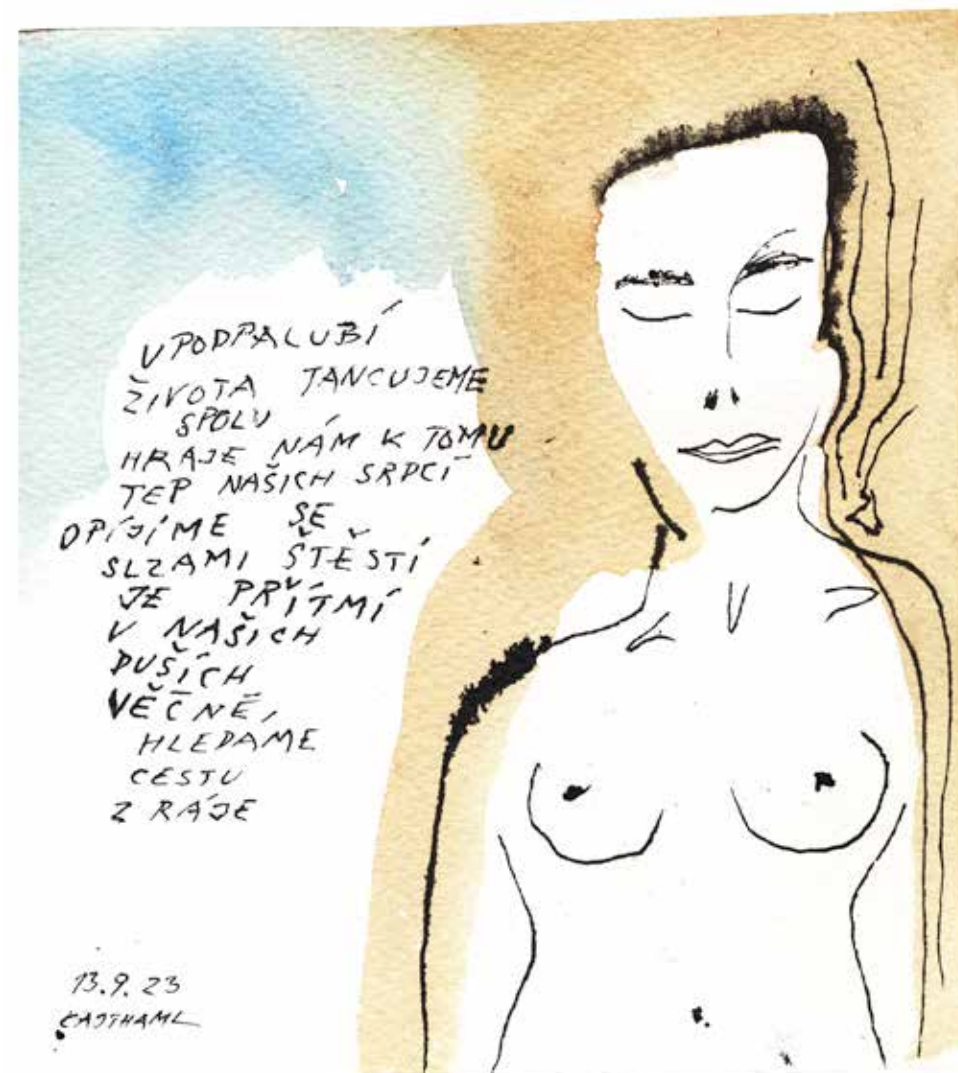 V PODPALUBÍ
ŽIVOTA TANCUJEME
SPOLU
HRAJE NÁM K TOMU
TEP NAŠICH SRDCÍ
OPÍJÍME SE
SLZAMI ŠTĚSTÍ
JE PŘÍTMÍ
V NAŠICH
DUŠÍCH
VĚČNĚ,
HLEDAME
CESTU
Z RÁJE
13.9.23
CAJTHAML